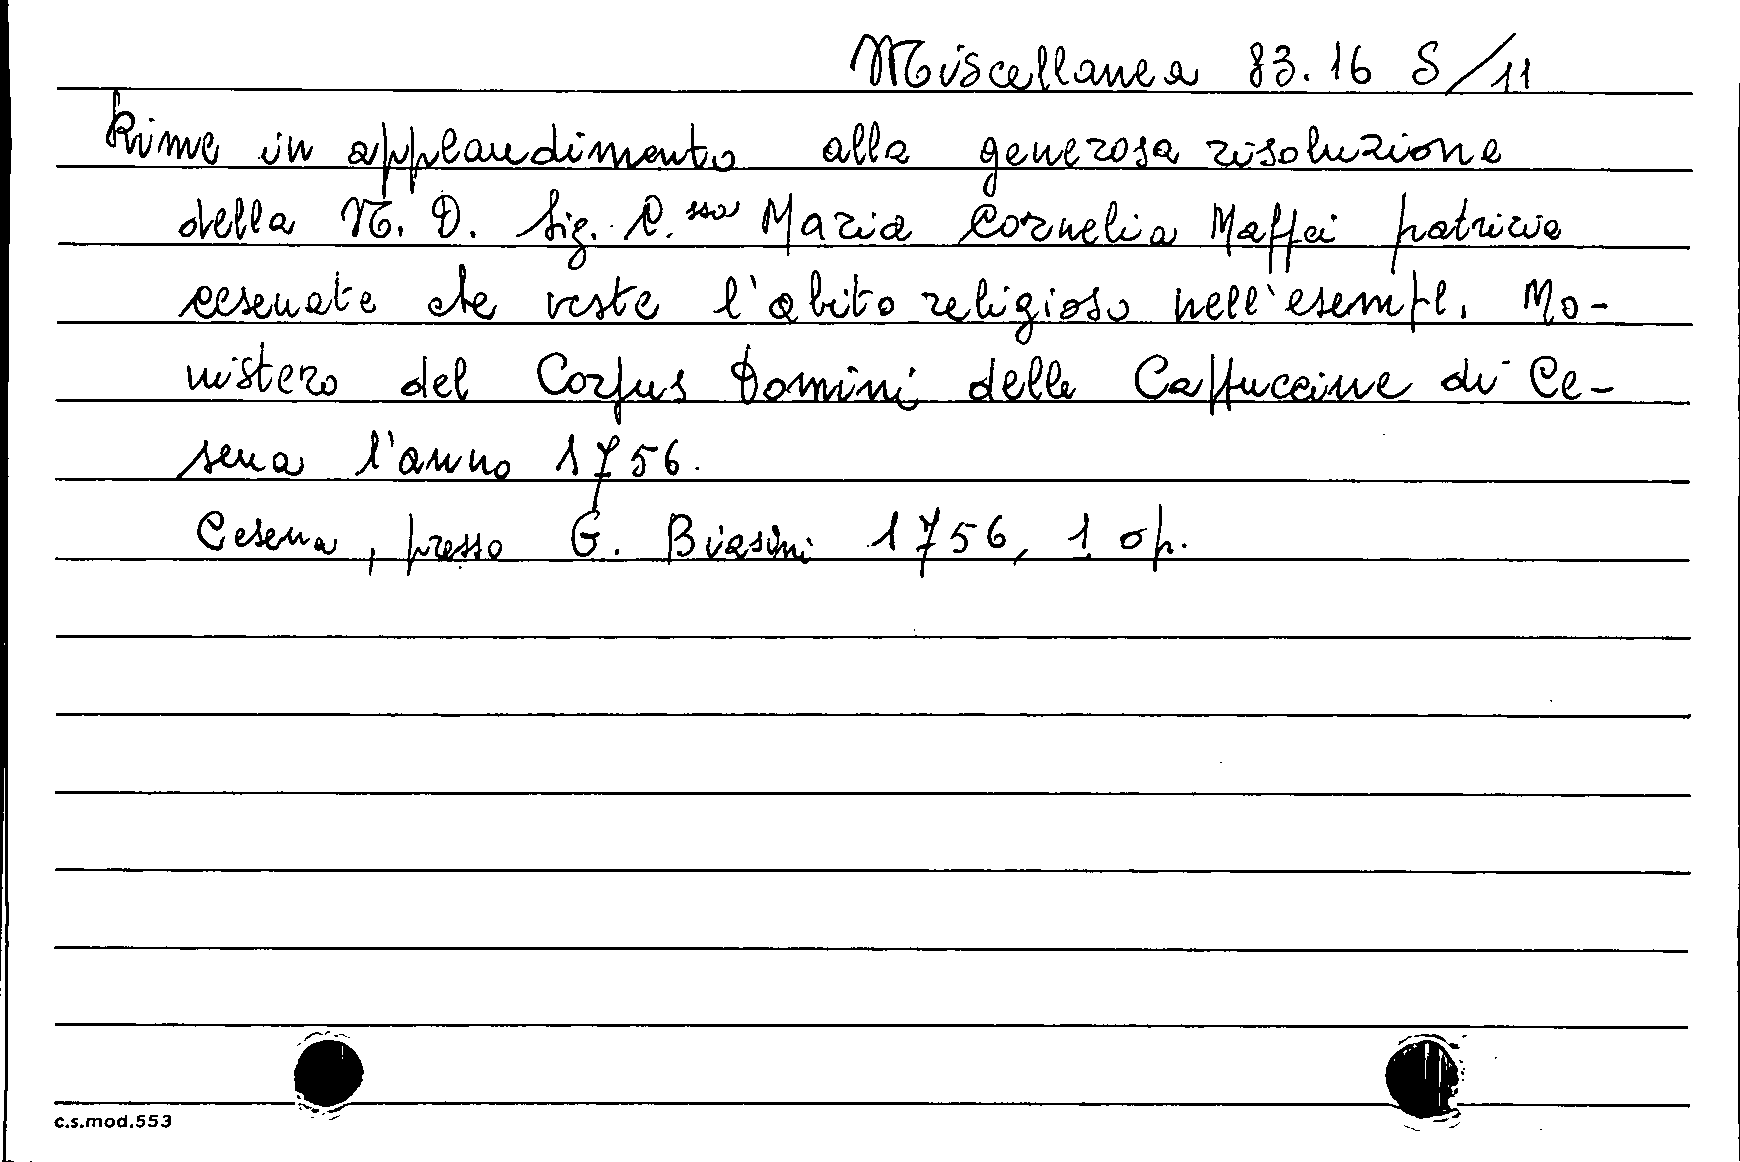 Miscellanea 83.16 S/11
Rime in applaudimento alla generosa risoluzione
della N. D. Sig. C.ssa Maria Cornelia Maffei patrizia
cesenate che veste l'abito religioso nell'esempl. Mo-
nistero del Corpus Domini delle Cappuccine di Ce-
sena l'anno 1756.
Cesena, presso G. Biasini 1756, 1 op.
c.s.mod.553